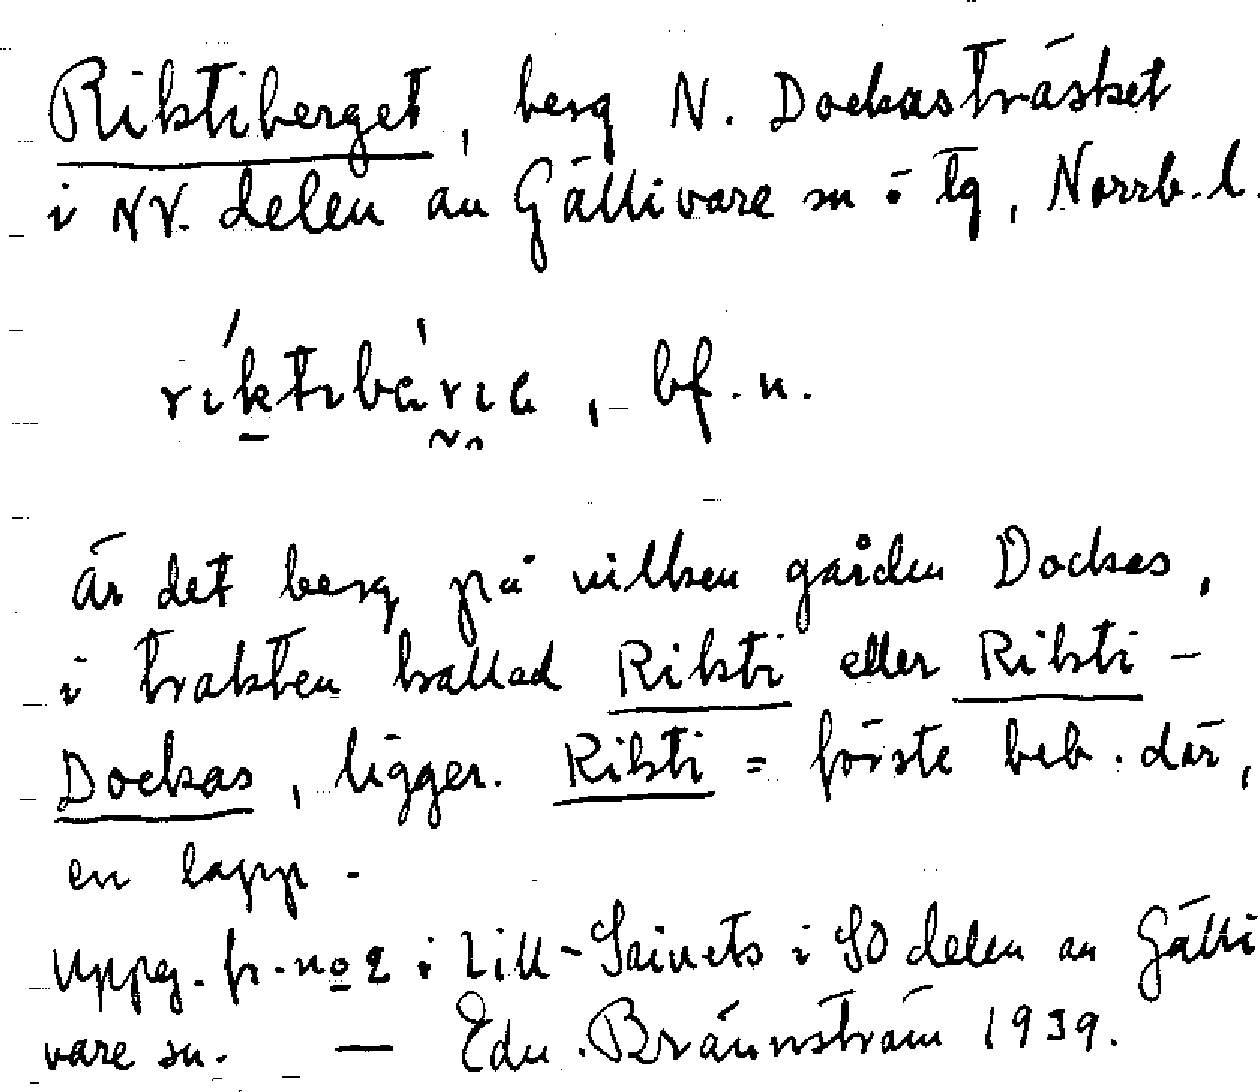 Riktiberget, berg N. Dockasträsket
i NV. delen av Gällivare sn o tg, Norrb. l.
ríktibä́ria, bf. n.
är det berg, på vilken gården Dockas,
i trakten kallad Rikti eller Rikti-
Dockas, ligger. Rikti = förste beb. där,
en lapp.
Uppg. fr. no 2 i Lill-Saivets i SO delen av Gälli
vare sn. — Edv. Brännström 1939.